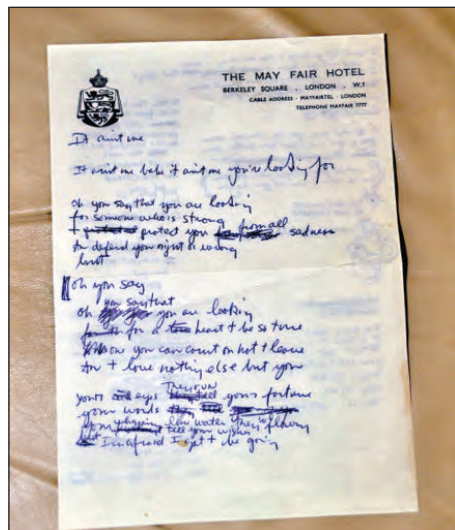 THE MAY FAIR HOTEL
BERKELEY SQUARE . LONDON . W.1
CABLE ADDRESS - MAYFAIRTEL - LONDON
TELEPHONE MAYFAIR 7777
It aint me
It aint me babe it aint me you're looking for
oh you say that you are looking
for someone who is strong
protect you from all sadness
to defend you right or wrong
but
oh you say
you say that
oh you are looking
for a heart t be so true
one you can count on not t leave
t love nothing else but you
They run
yours eyes your fortune
your words
low water they flowing
tell your wishes
I'm afraid I got t be going